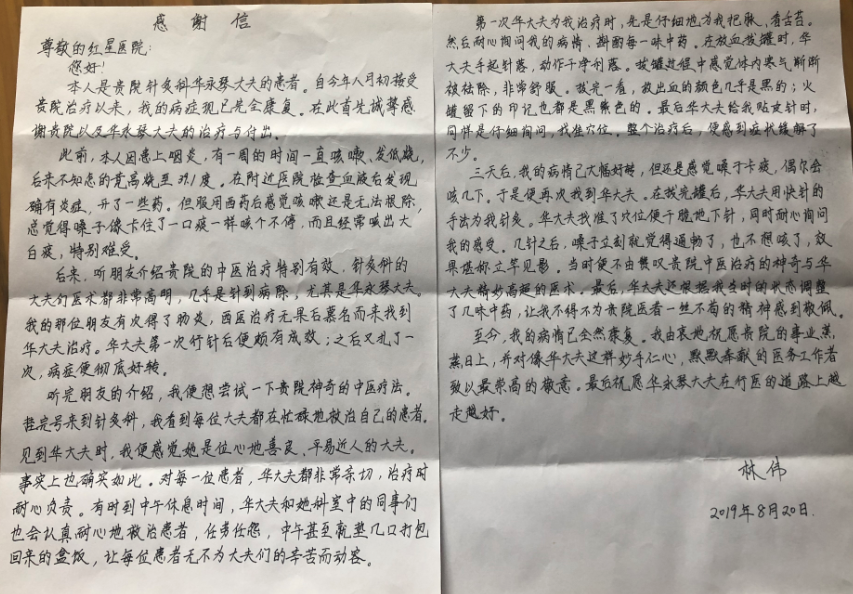 感谢信
尊敬的红星医院：
您好！
本人是贵院针灸科华永琴大夫的患者。自今年八月初接受
贵院治疗以来，我的病症现已完全康复。在此首先诚挚感
谢贵院以及华永琴大夫的治疗与付出。
此前，本人因患上咽炎，有一周的时间一直咳嗽、发低烧，
后来不知怎的竟高烧至39.1度。在附近医院检查血液后发现
确有炎症，开了一些药。但服用西药后感觉咳嗽还是无法根除，
总觉得嗓子像卡住了一口痰一样咳个不停，而且经常咳出大
白痰，特别难受。
后来，听朋友介绍贵院的中医治疗特别有效，针灸科的
大夫们医术都非常高明，几乎是针到病除，尤其是华永琴大夫。
我的那位朋友有次得了肠炎，西医治疗无果后慕名而来找到
华大夫治疗。华大夫第一次行针后便颇有成效；之后又扎了一
次，病症便彻底好转。
听完朋友的介绍，我便想尝试一下贵院神奇的中医疗法。
挂完号来到针灸科，我看到每位大夫都在忙碌地救治自己的患者。
见到华大夫时，我便感觉她是位心地善良、平易近人的大夫。
事实上也确实如此。对每一位患者，华大夫都非常亲切，治疗时
耐心负责。有时到中午休息时间，华大夫和她科室中的同事们
也会认真耐心地救治患者，任劳任怨，中午甚至就垫几口打包
回来的盒饭，让每位患者无不为大夫们的辛苦而动容。
第一次华大夫为我治疗时，先是仔细地为我把脉，看舌苔。
然后耐心询问我的病情，斟酌每一味中药。在放血拔罐时，华
大夫手起针落，动作干净利落。拔罐过程中感觉体内寒气渐渐
被祛除，非常舒服。拔完一看，放出血的颜色几乎是黑的；火
罐留下的印记也都是黑紫色的。最后华大夫给我贴皮针时，
同样是仔细询问，找准穴位。整个治疗后，便感到症状缓解了
不少。
三天后，我的病情已大幅好转，但还是感觉嗓子卡痰，偶尔会
咳几下。于是便再次找到华大夫。在拔完罐后，华大夫用快针的
手法为我针灸。华大夫找准了穴位便干脆地下针，同时耐心询问
我的感受。几针之后，嗓子立刻就觉得通畅了，也不想咳了，效
果堪称立竿见影。当时便不由赞叹贵院中医治疗的神奇与华
大夫精妙高超的医术。最后，华大夫还根据我当时的状态调整
了几味中药，让我不得不为贵院医者一丝不苟的精神感到敬佩。
至今，我的病情已全然康复。我由衷地祝愿贵院的事业蒸
蒸日上，并对像华大夫这样妙手仁心，默默奉献的医务工作者
致以最崇高的敬意。最后祝愿华永琴大夫在行医的道路上越
走越好。
林伟
2019年8月20日.